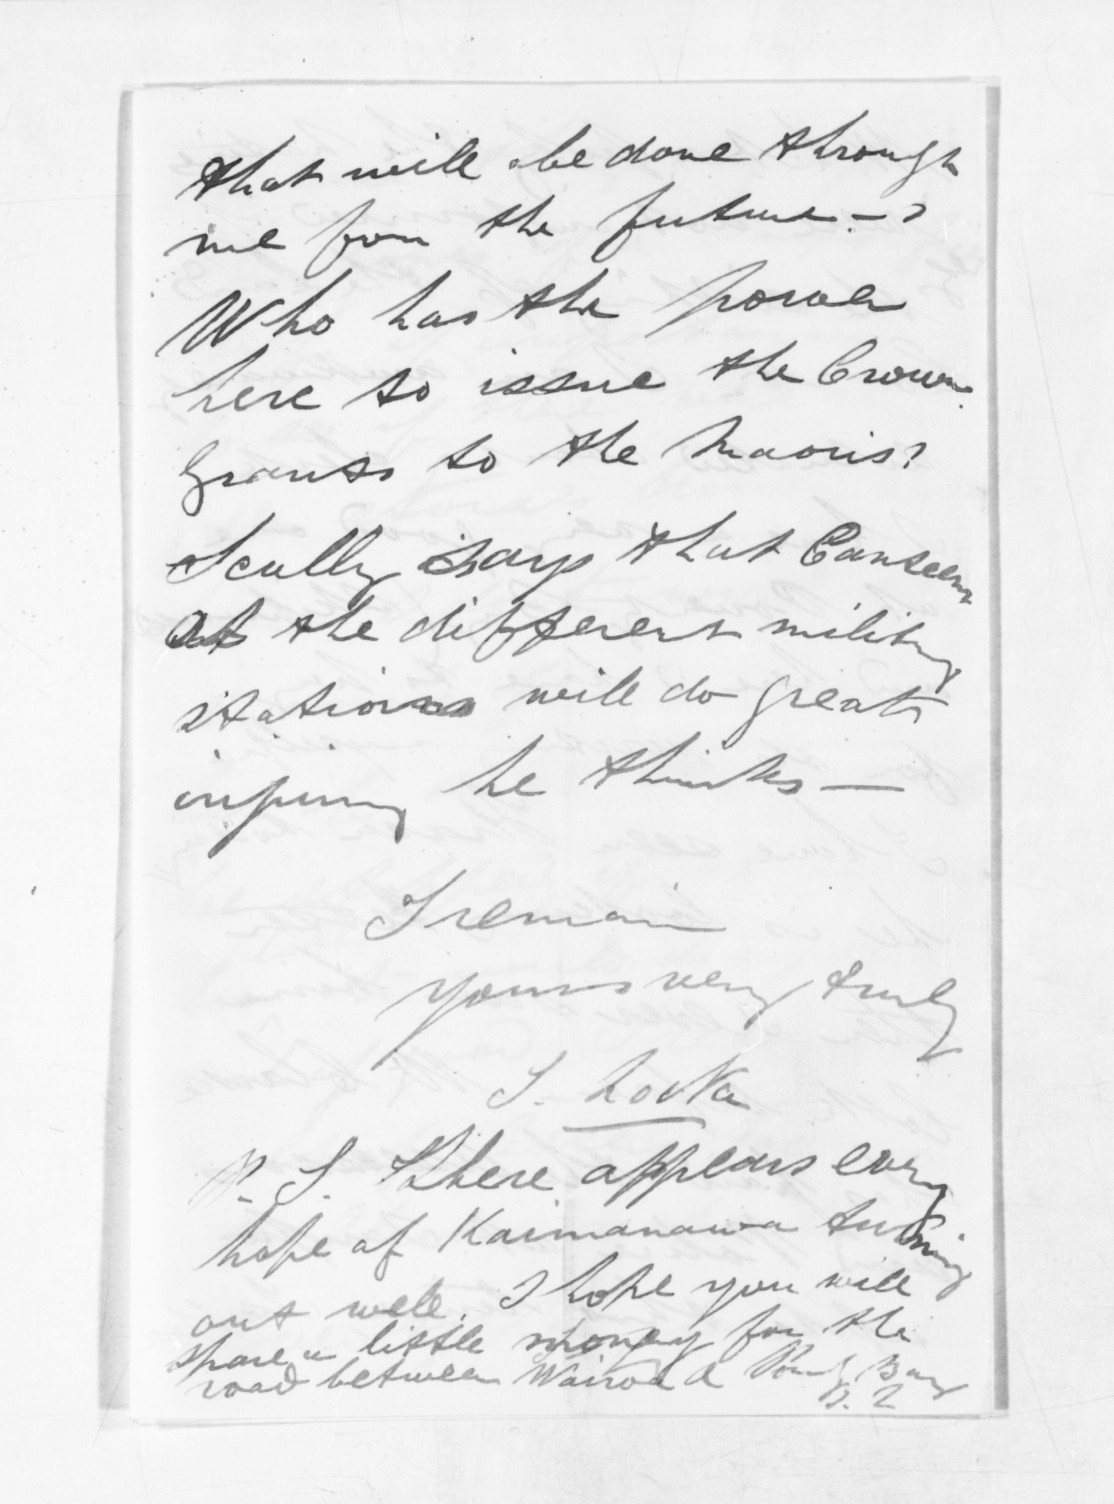 that will be done through
me for the future - ?
Who has the power
here to issue the Crown
Grants to the Maoris?
Scully says that Canteens
at the different military
stations will do great
injury he thinks —
I remain
Yours very truly
S. Locke
P. S. There appears every
hope of Kaimanawa turning
out well. I hope you will
spare a little money for the
road between Wairoa & Poverty Bay
S. L